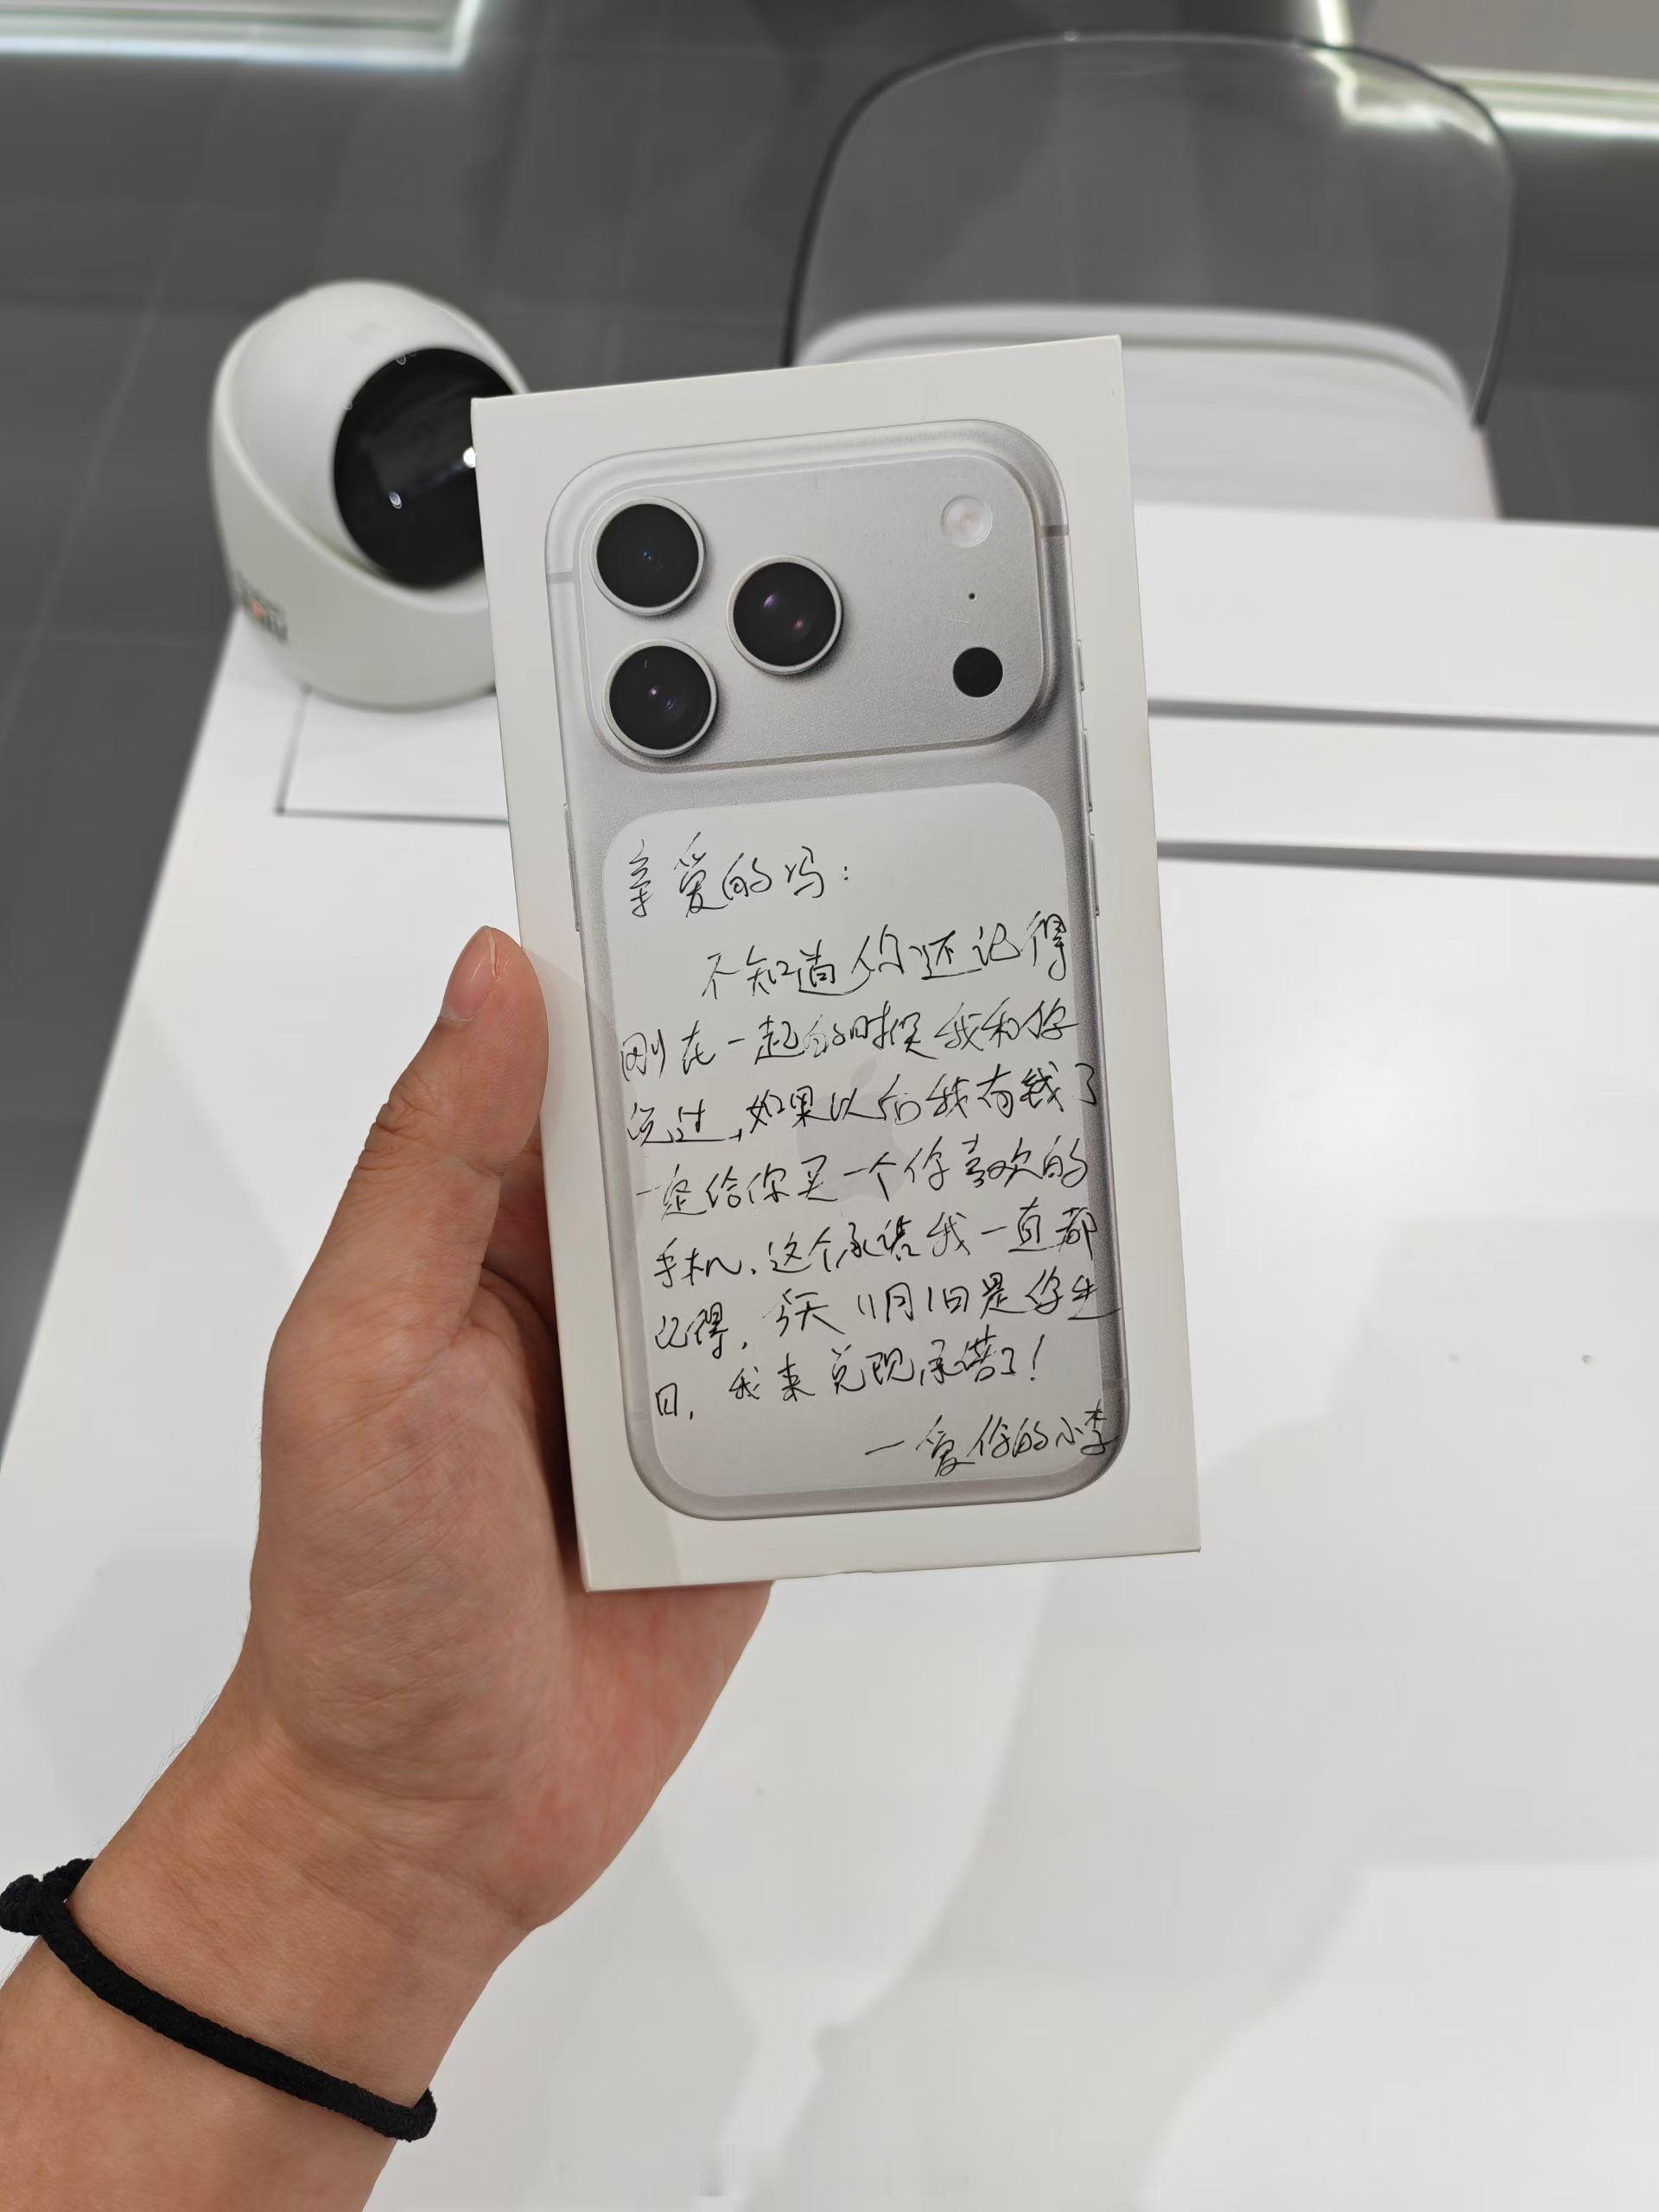 亲爱的冯：
不知道你还记得
刚在一起的时候我和你
说过，如果以后我有钱了
一定给你买一个你喜欢的
手机，这个承诺我一直都
记得，今天11月1日是你生
日，我来兑现承诺了！
一爱你的小李